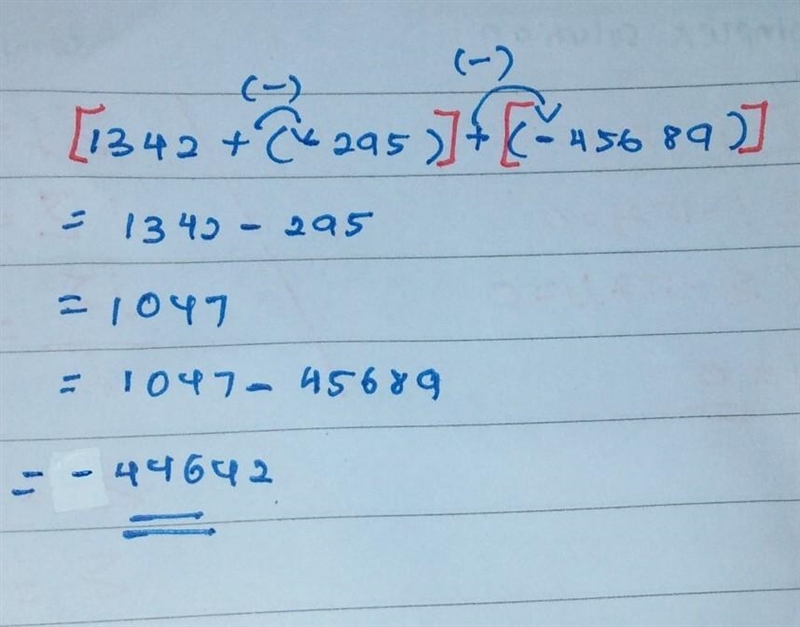 (-) (-)
[1342 + (- 295)] + [(- 45689)]
= 1342 - 295
= 1047
= 1047 - 45689
= - 44642